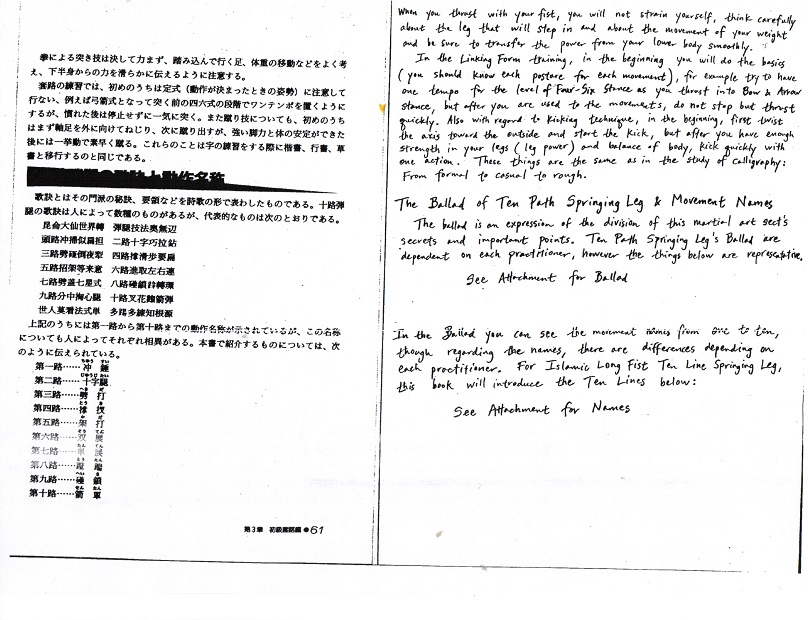 拳による突き技は決して力まず、踏み込んで行く足、体重の移動などをよく考
え、下半身からの力を滑らかに伝えるように注意する。
套路の練習では、初めのうちは定式（動作が決まったときの姿勢）に注意して
行ない、例えば弓箭式となって突く前の四六式の段階でワンテンポを置くように
するが、慣れた後は停止せずに一気に突く。また蹴り技についても、初めのうち
はまず軸足を外に向けてねじり、次に蹴り出すが、強い脚力と体の安定ができた
後には一挙動で素早く蹴る。これらのことは字の練習をする際に楷書、行書、草
書と移行するのと同じである。
歌訣と動作名称
歌訣とはその門派の秘訣、要領などを詩歌の形で表わしたものである。十路弾
腿の歌訣は人によって数種のものがあるが、代表的なものは次のとおりである。
昆侖大仙世界轉 彈腿技法奥無辺
頭路冲掃似扁担 二路十字巧拉鉆
三路劈砸倒夜犁 四路撑滑步要扁
五路招架等来意 六路進取左右連
七路劈蓋七星式 八路碰鎖轉環
九路分中掏心腿 十路叉花箭彈
世人莫看法式単 多踢多練知根源
上記のうちには第一路から第十路までの動作名称が示されているが、この名称
についても人によってそれぞれ相異がある。本書で紹介するものについては、次
のように伝えられている。
第一路……冲 錘
第二路……十字腿
第三路……劈 打
第四路……撑
第五路……架 打
第六路……双 展
第七路……単 展
第八路……
第九路……碰 鎖
第十路……箭
第3章 初級套路編●61
When you thrust with your fist, you will not strain yourself, think carefully
about the leg that will step in and about the movement of your weight
and be sure to transfer the power from your lower body smoothly.
In the Linking Form training, in the beginning you will do the basics
(you should know each posture for each movement), for example try to have
one tempo for the level of Four-Six Stance as you thrust into Bow & Arrow
stance, but after you are used to the movements, do not stop but thrust
quickly. Also with regard to kicking technique, in the beginning, first twist
the axis toward the outside and start the kick, but after you have enough
strength in your legs (leg power) and balance of body, kick quickly with
one action. These things are the same as in the study of calligraphy:
From formal to casual to rough.
The Ballad of Ten Path Springing Leg & Movement Names
The ballad is an expression of the division of this martial art sect's
secrets and important points. Ten Path Springing Leg's Ballad are
dependent on each practitioner, however the things below are representative.
See Attachment for Ballad
In the Ballad you can see the movement names from one to ten,
though regarding the names, there are differences depending on
each practitioner. For Islamic Long Fist Ten Line Springing Leg,
this book will introduce the Ten Lines below:
See Attachment for Names